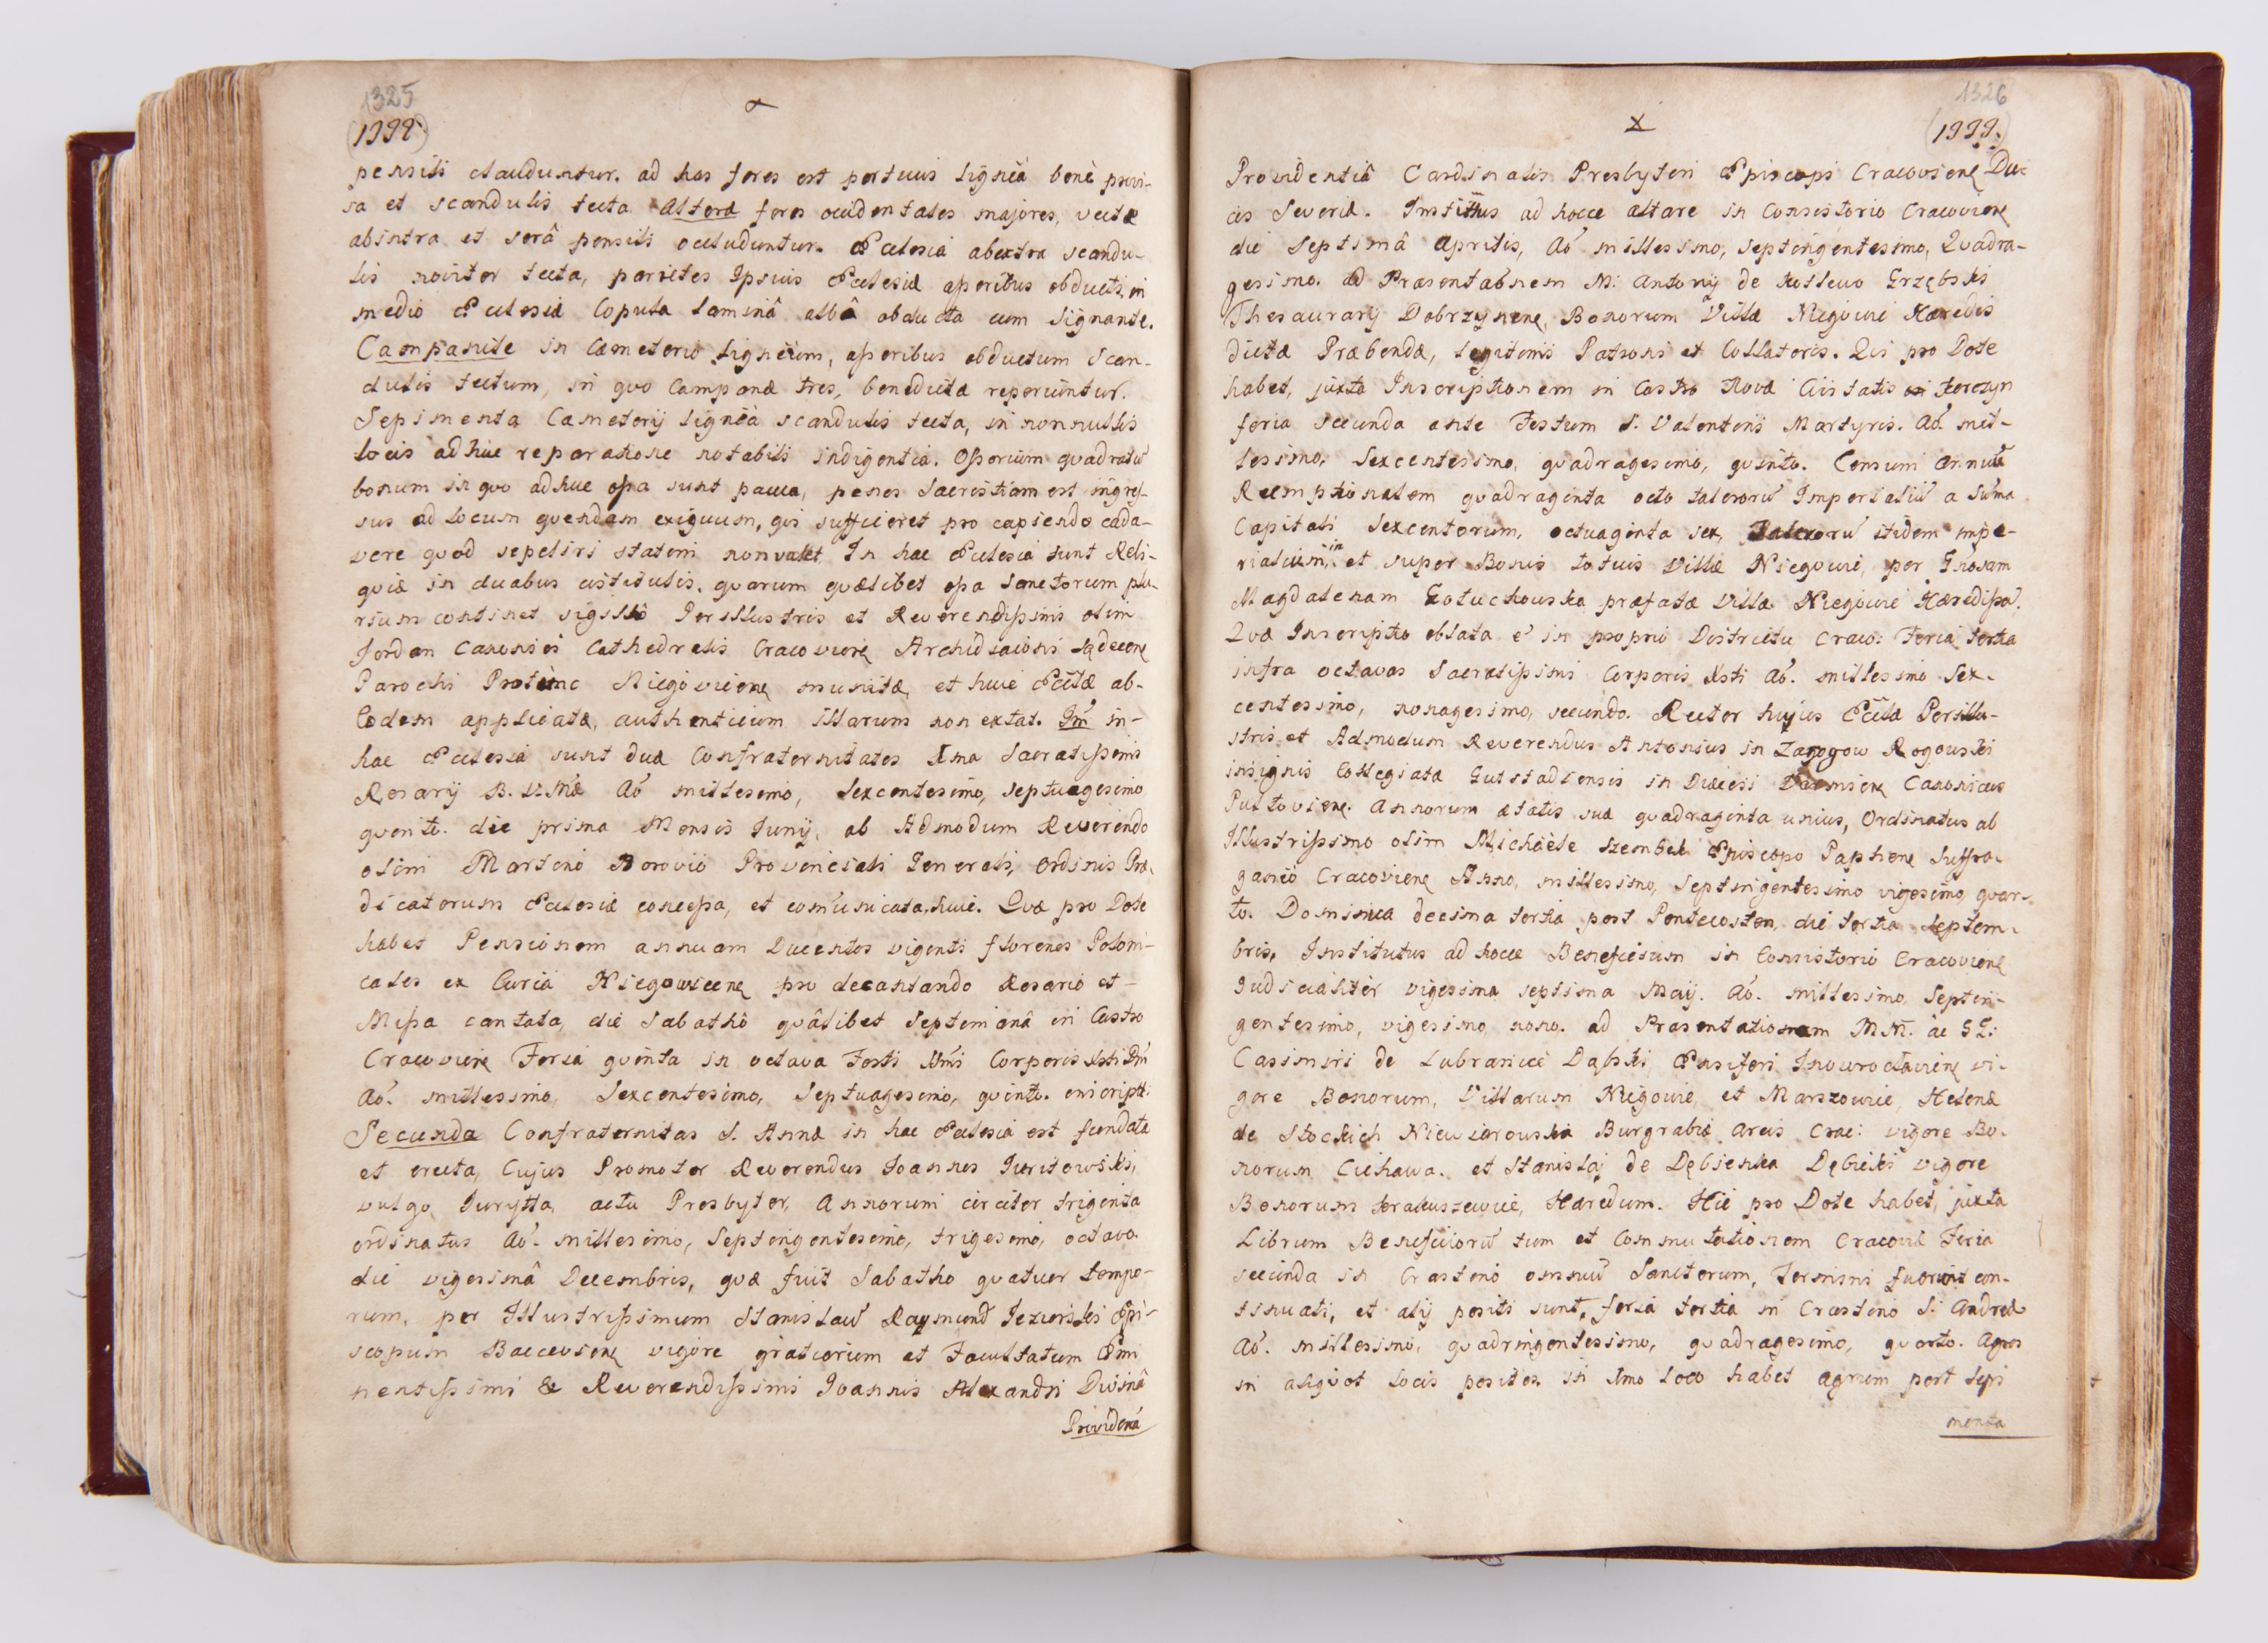 1325
(1998)
pensili clauduntur. ad has fores est porticus lignea bene provi-
sa et scandulis tecta. Alteræ fores occidentales majores, vecte
abintra et serâ pensili occluduntur. Ecclesia abextra scandu-
lis noviter tecta, parietes Ipsius Ecclesiæ asseribus obducti, in
medio Ecclesiæ Copula laminâ albâ obducta cum signante.
Campanile in Cæmeterio ligneum, asseribus obductum Scan-
dulis tectum, in quo Campanæ tres, benedictæ reperiuntur.
Sepimenta Cæmeterij lignea scandulis tecta, in nonnullis
locis adhuc reparatione notabili indigentia. Ossorium quadratũ
bonum in quo adhuc ossa sunt pauca, penes Sacristiam est ingres-
sus ad locum quendam exiguum, qui sufficeret pro capiendo cada-
vere quod sepeliri statim non valet In hac Ecclesia sunt Reli-
quiæ in duabus cistulis, quarum quælibet ossa Sanctorum plu-
rium continet sigillô Perillustris et Reverendissimi olim
Jordan Canonici Cathedralis Cracovien Archidiaconi Sądecen
Parochi Protunc Niegovicien munitæ, et huic Eccłæ ab-
Eodem applicatæ, authenticum illarum non extat. Itm in-
hac Ecclesia sunt duæ Confraternitates Ima Sacratissimi
Rosarij B.V.Mæ Aõ millesimo, Sexcentesimo, Septuagesimo
quinto. die prima Mensis Junij, ab Admodum Reverendo
olim Martino Borovio Provinciali Generali, Ordinis Præ-
dicatorum Ecclesiæ concessa, et com̃unicata, huic. Quæ pro Dote
habet Pensionem annuam Ducentos viginti florenos Poloni-
cales ex Curia Niegowiecien pro decantando Rosario et-
Missa cantata, die Sabathô quâlibet Septimanâ in Castro
Cracovien Feria quinta in octava Festi SSmi Corporis Xsti Dni
Aõ. millesimo, Sexcentesimo, Septuagesimo, quinto. inscript:
Secunda Confraternitas S. Annæ in hac Ecclesia est fundata
et erecta, Cujus Promotor Reverendus Joannes Juritowski,
vulgo Jurytta, actu Presbyter, Annorum circiter triginta
ordinatus Aõ. millesimo, Septingentesimo, trigesimo, octavo
die vigesimâ Decembris, quæ fuit Sabatho quatuor tempo-
rum, per Illustrissimum Stanislaũ Raymund Jezierski Epi-
scopum Baccovien vigore gratiarum et Facultatum Emi
nentissimi & Reverendissimi Joannis Alexandri Divinâ
Providenâ
1326
(1999.)
Providentiâ Cardinalis Presbyteri Episcopi Cracovien Du-
cis Severiæ. Institũus ad hocce altare in Consistorio Cracovien
die septimâ Aprilis, Aõ millesimo, septingentesimo, Quadra-
gesimo. ad Præsentaõnem M: Antonij de Grzębski
Thesaurarij Dobrzynen, Bonorum Villæ Niegowic Hæredis
dictæ Præbendæ, legitimi Patroni et Collatoris. Qui pro Dote
habet, juxta Inscriptionem in Castro Novæ Civitatis Korczyn
feria secunda ante Festum S. Valentini Martyris. Aõ. mil-
lesimo, Sexcentesimo, quadragesimo, quinto. Censum Annuũ
Reemptionalem quadraginta octo talerorũ Imperialiũ a Sum̃a
Capitali Sexcentorum, octuaginta sex, Talerorũ itidem impe-
rialium, in et super Bonis totius Villæ Niegowic, per Gnosam
Magdalenam Gołuchowska præfatæ Villæ Niegowic Hæredissã.
Quæ Inscriptio oblata ẽ in proprio Districtu Crac: Feria tertia
infra octavas Sacratissimi Corporis Xsti Aõ. millesimo Sex-
centesimo, nonagesimo, secundo. Rector hujus Eccłæ Perillu-
stris et Admodum Reverendus Antonius in Zarogow Rogowski
insignis Collegiatæ Gutstadiensis in Diæcesi Varmien Canonicus
Pultovien. Annorum ætatis suæ quadraginta unius, Ordinatus ab
Illustrissimo olim Michaele Szembek Episcopo Paphien Suffra-
ganeo Cracovien Anno, millesimo, Septingentesimo vigesimo quar-
to. Dominica decima tertia post Pentecosten, die tertia Septem-
bris, Institutus ad hocce Beneficium in Consistorio Cracovien
Judicialiter vigesima septima Maij. Aõ. millesimo Septin-
gentesimo, vigesimo nono. ad Præsentationem MM. ac GG:
Casimiri de Lubraniec Dąbski, Ensiferi Inowrocłavien vi-
gore Bonorum, Villarum Niegowic, et Marszowic, Helenæ
de Stockich Niewiarowska Burgrabiæ Arcis Crac: vigore Bo-
norum Cichawa. et Stanislaj de Dębienka Dębicki vigore
Bonorum Krakuszewice, Hæredum. Hic pro Dote habet, juxta
Librum Beneficiorũ tum et Commutationem Cracoviæ Feria
secunda in Crastino omniũ Sanctorum, Termini fuerint con-
tinuati, et alij positi sunt, feria tertia in Crastino S. Andreæ
Aõ. millesimo, quadringentesimo, quadragesimo, quarto. Agros
in aliquot locis positos in Imo loco habet agrum post sepi
menta